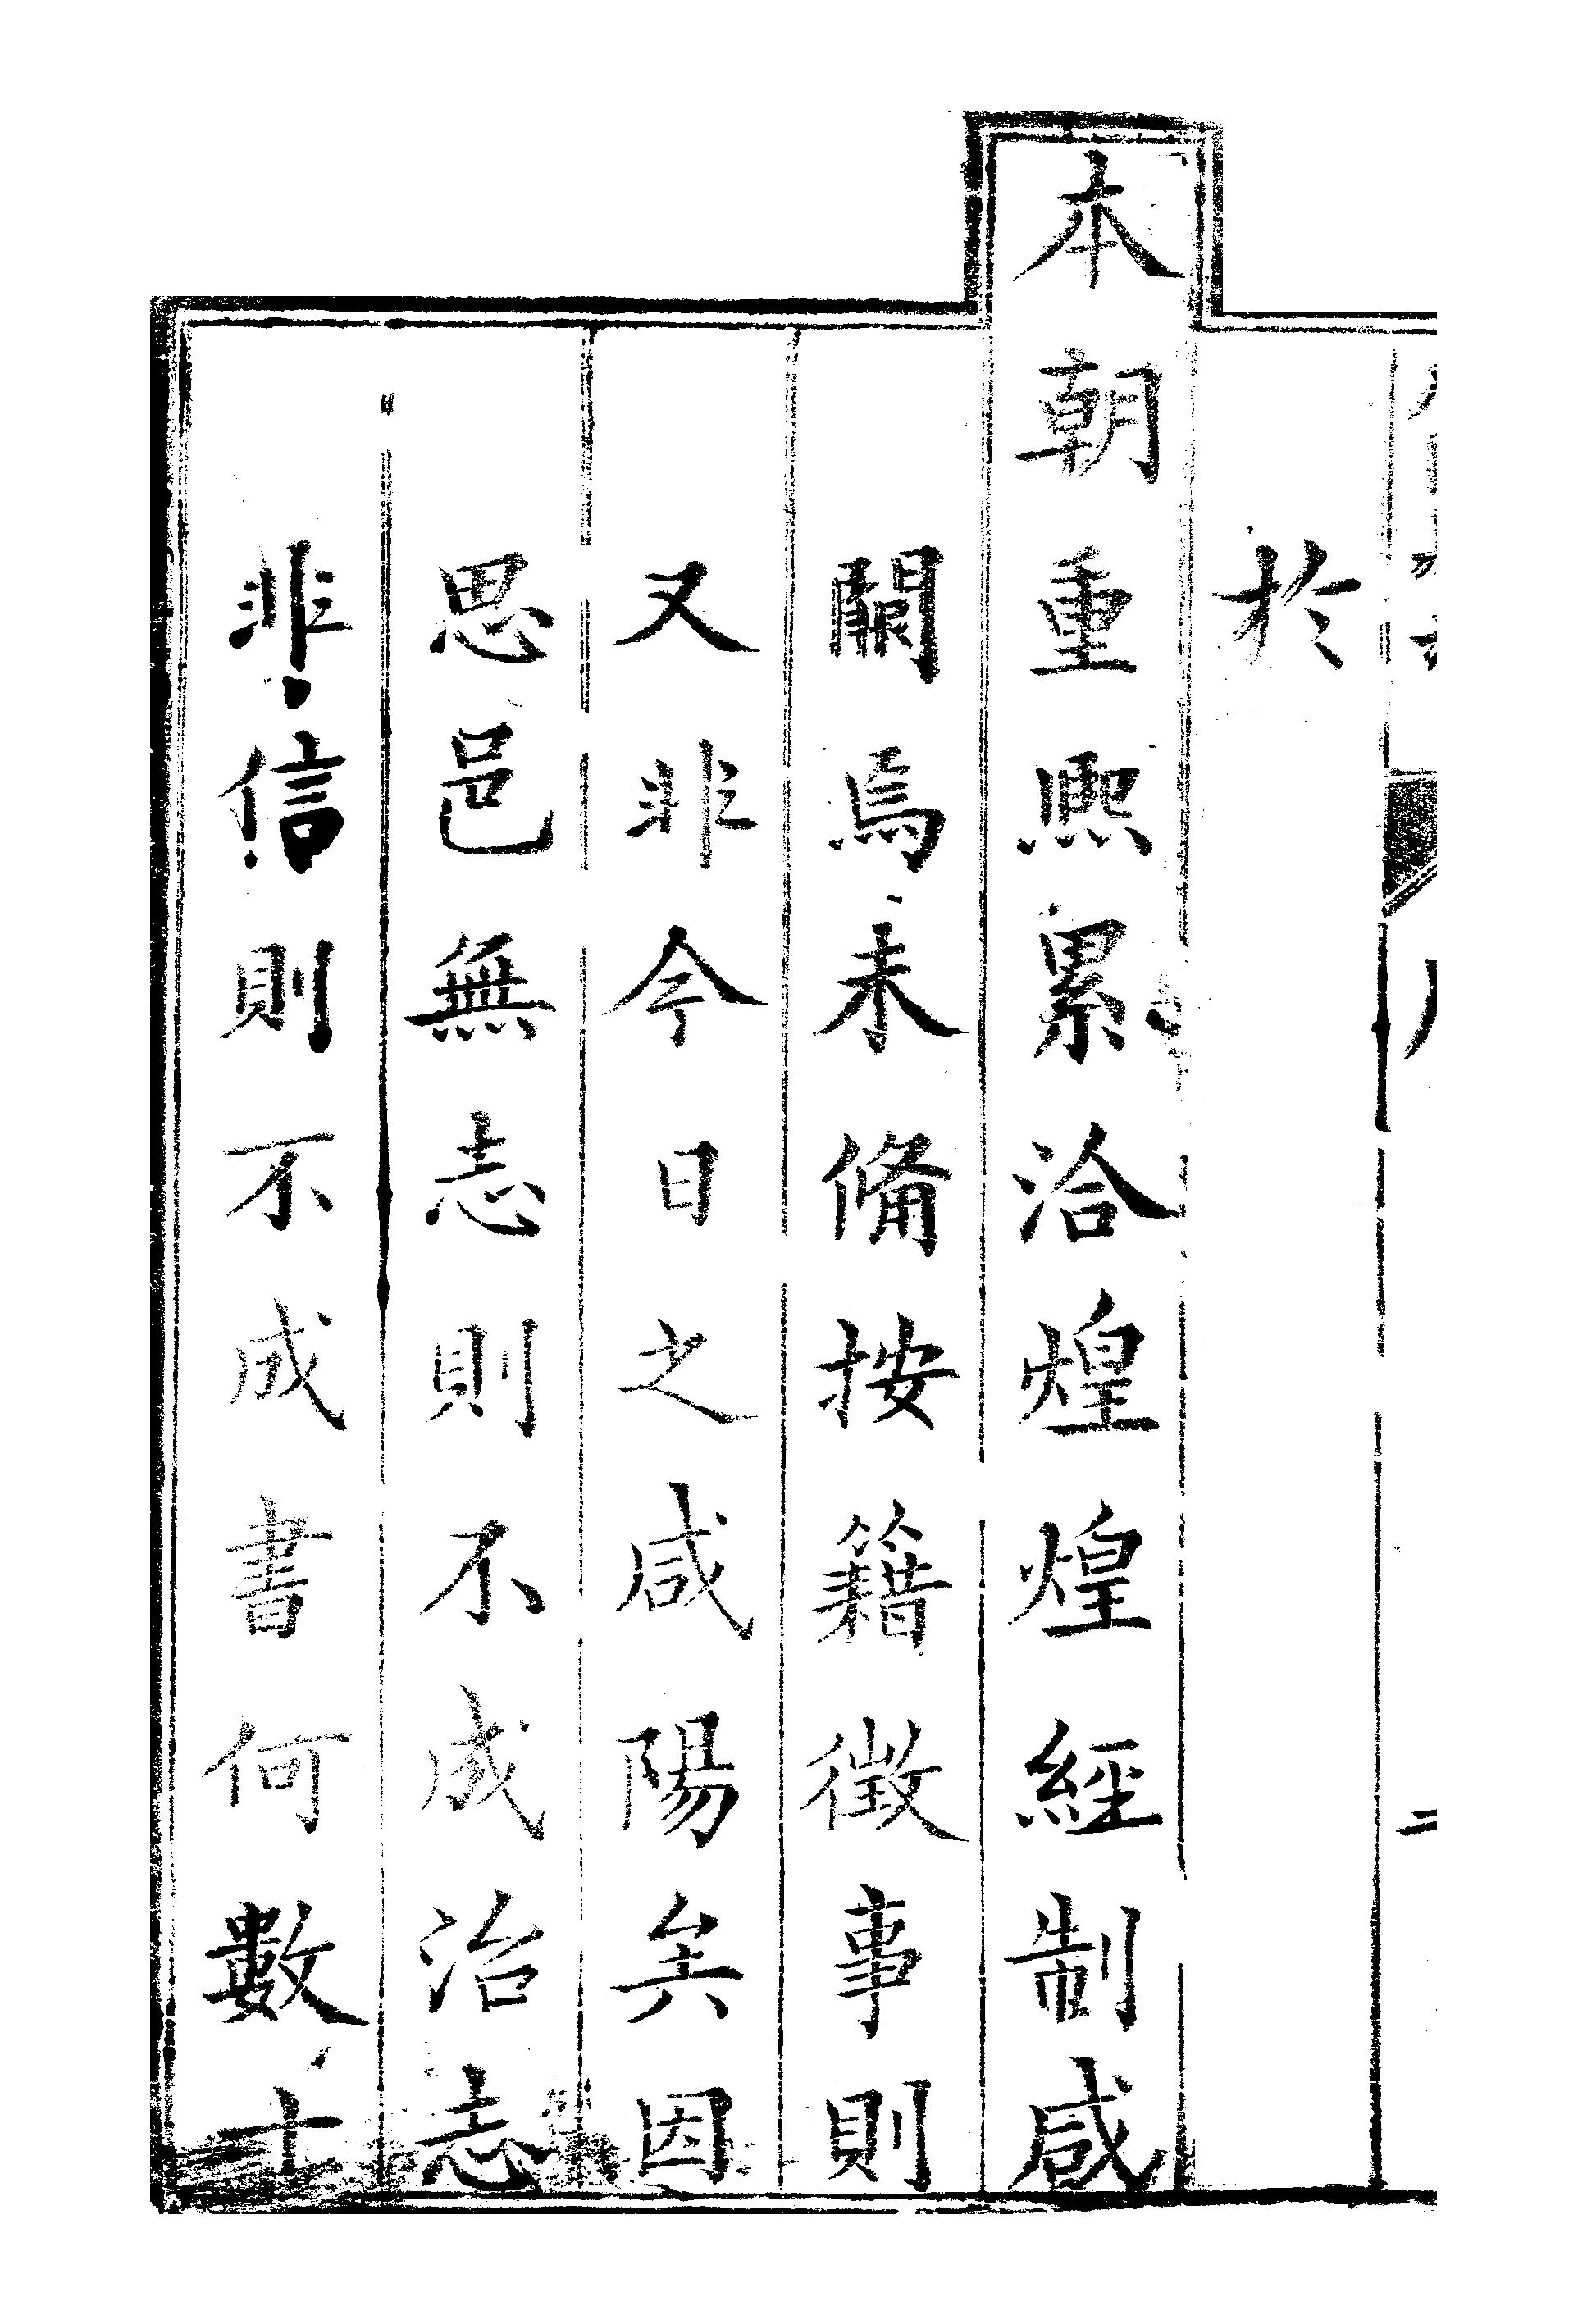 於
本朝重熙累洽煌煌經制咸
闕焉未備按籍徵事則
又非今日之咸陽矣因
思邑無志則不成治志
非信則不成書何數十
二